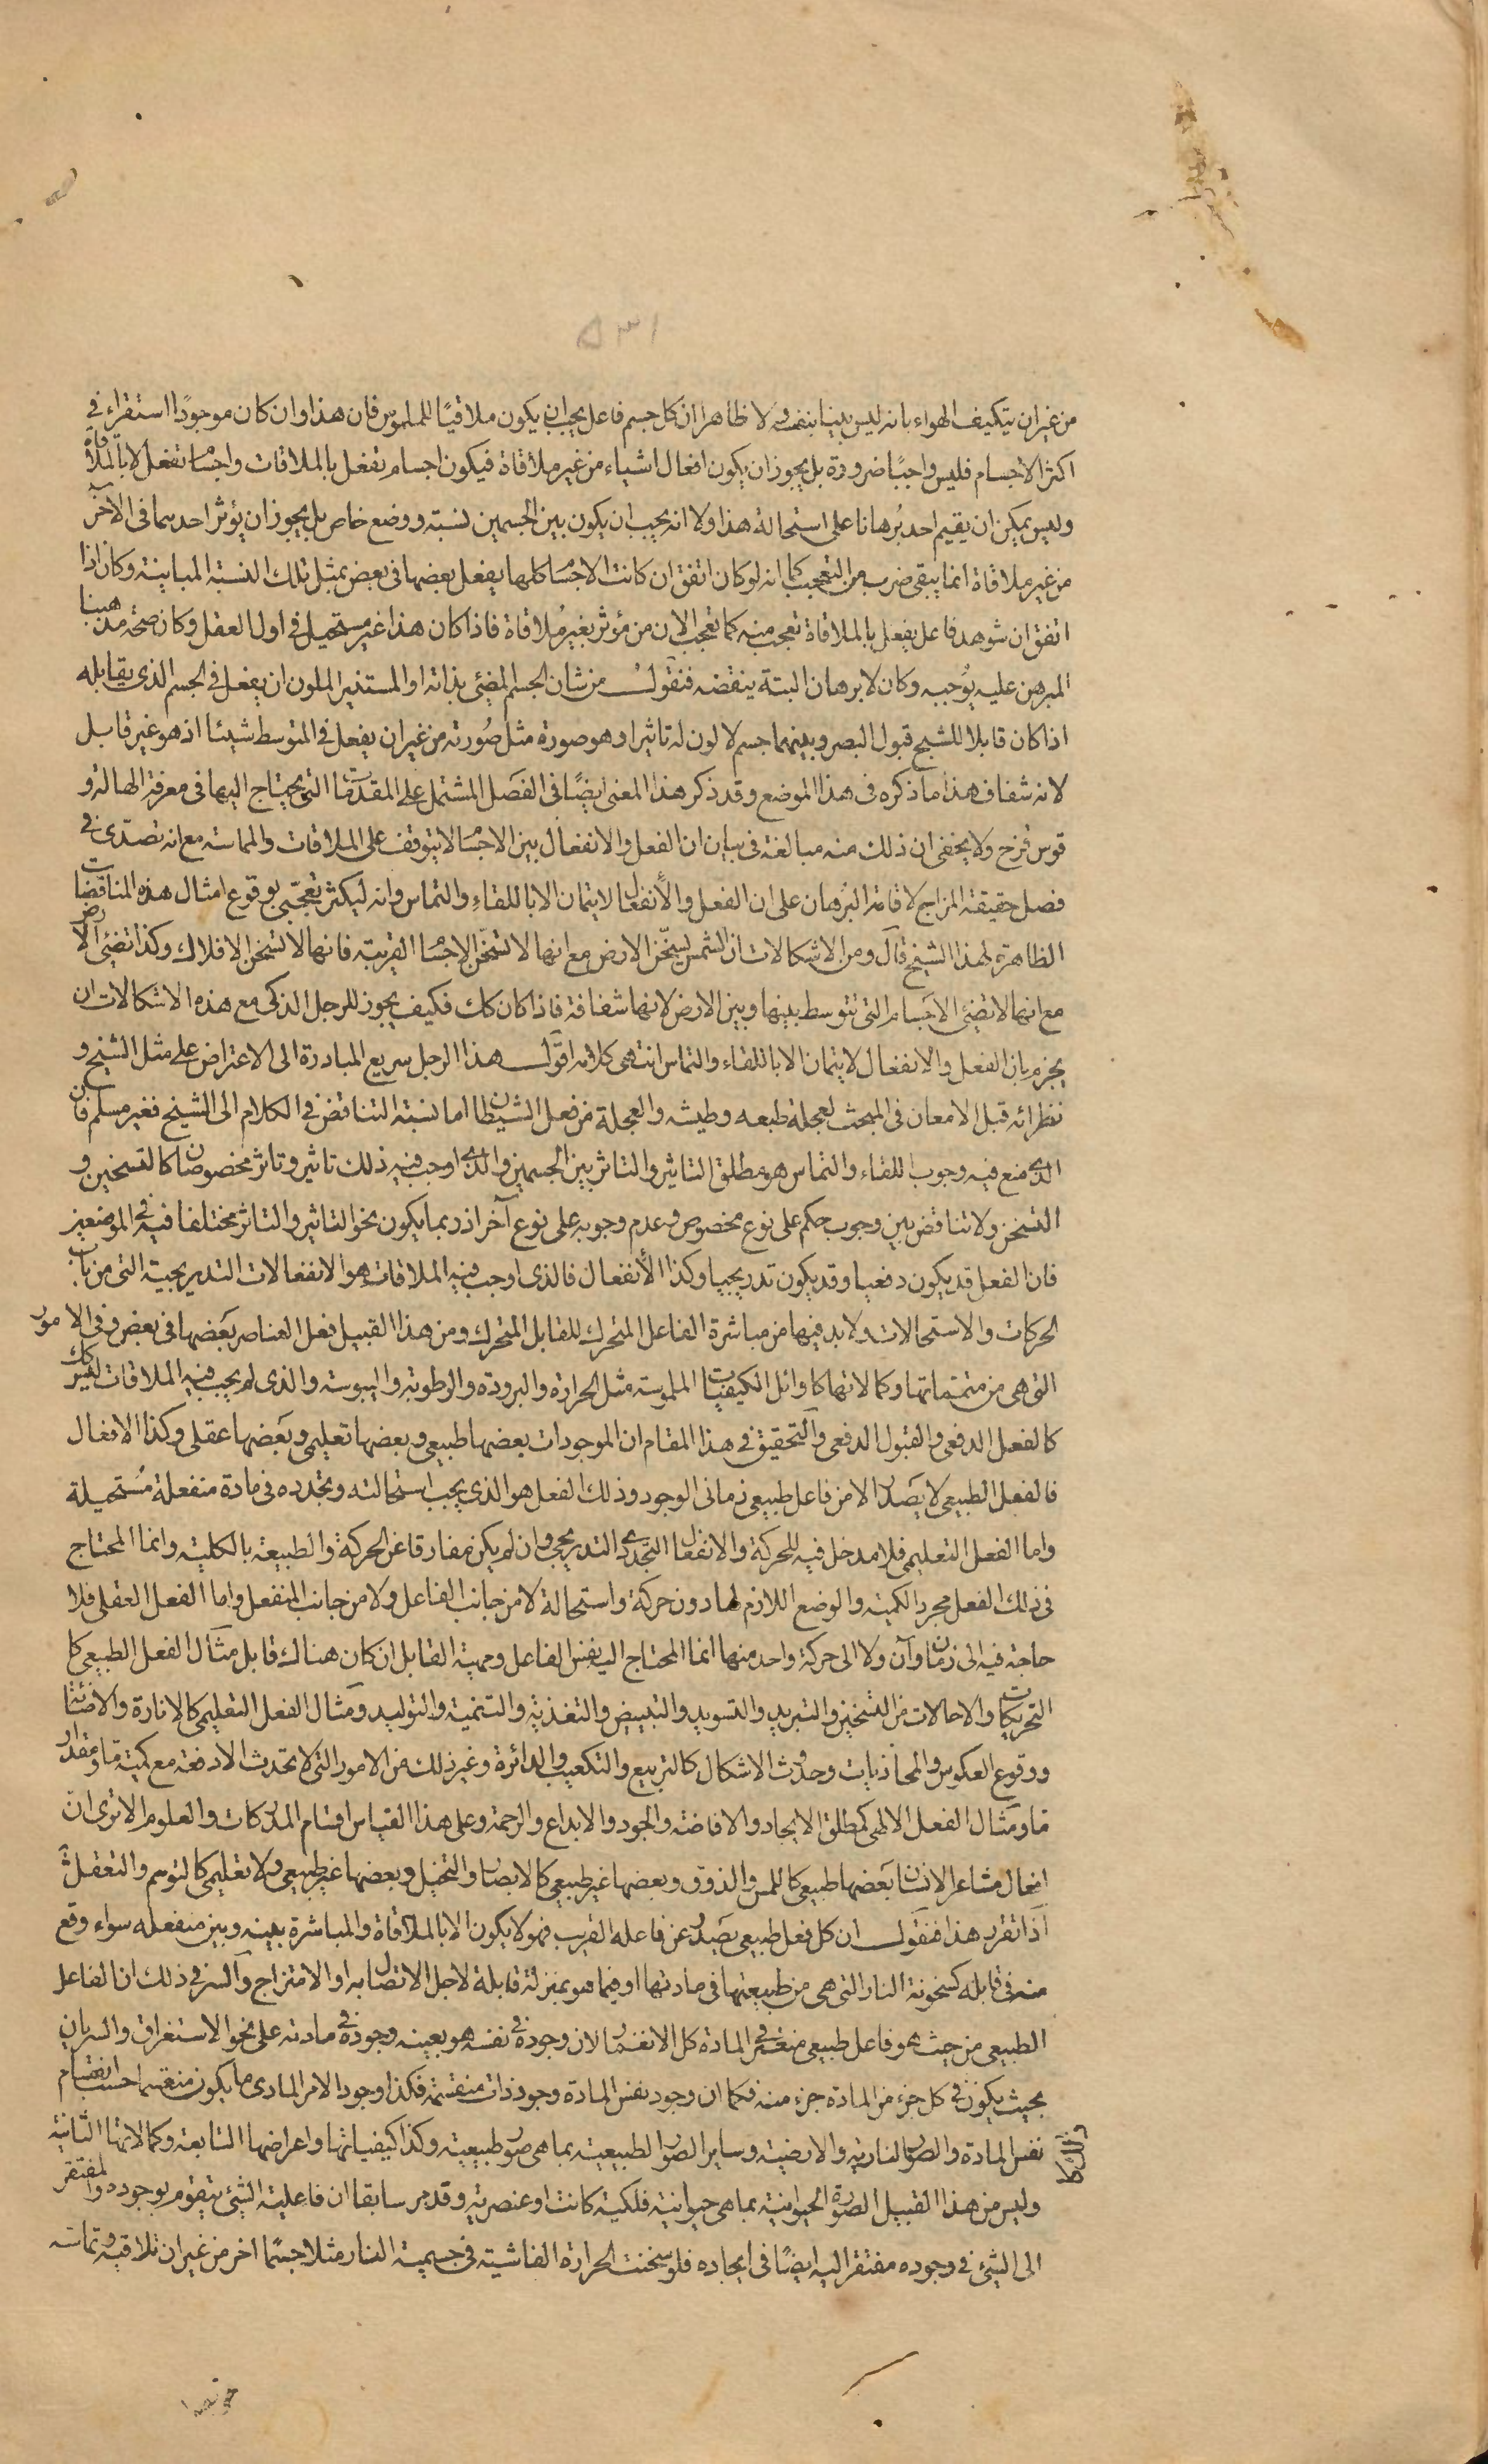 ٥٣١
من غير ان يتكيف الهواء بانه ليس بينا بنفسه ولا ظاهرا ان كل جسم فاعل يجب ان يكون ملاقيًا للملموس فان هذا وان كان موجودًا استقراء في
اكثر الاجسام فليس واجبًا ضرورة بل يجوز ان يكون افعال اشياء من غير ملاقاة فيكون اجسام تفعل بالملاقات واجسام تفعل لا بالملاقاة
وليس يمكن ان يقيم احد بُرهانا على استحالة هذا ولا انه يجب ان يكون بين الجسمين نسبة ووضع خاص بل يجوز ان يؤثر احدهما في الآخر
من غير ملاقاة انما يبقى ضرب من التعجب كما انه لو كان اتفق ان كانت الاجسام كلها يفعل بعضها في بعض بمثل تلك النسبة المباينة وكان اذا
اتفق ان شوهد فاعل يفعل بالملاقاة تعجب منه كما تعجب الان من مؤثر بغير مُلاقاة فاذا كان هذا غير مستحيل في اول العقل وكان صحة مذهبنا
المبرهن عليه يُوجبه وكان لا برهان البتة ينقضه فنقول من شان الجسم المضئ بذاته او المستنير الملون ان يفعل في الجسم الذي يقابله
اذا كان قابلا للشبح قبول البصر وبينهما جسم لا لون له تاثيرا وهو صورة مثل صُورته من غير ان يفعل في المتوسط شيئا اذ هو غير قابل
لانه شفاف هذا ما ذكره في هذا الموضع وقد ذكر هذا المعنى ايضًا في الفصل المشتمل على المقدمات التي يحتاج اليها في معرفة الهالة و
قوس قزح ولا يخفى ان ذلك منه مبالغة في بيان ان الفعل والانفعال بين الاجسام لا يتوقف على الملاقات والمماسة مع انه تصدّى في
فصل حقيقة المزاج لاقامة البرهان على ان الفعل والأنفعال لا يتمان الا باللقاءِ والتماس وانه ليكثر تعجّبي بوقوع امثال هذه المناقضات
الظاهرة لهذا الشيخ قال ومن الاشكالات ان الشمس يسخّن الارض مع انها لا تسخّن الاجسام القريبة فانها لا تسخن الافلاك وكذا تضئ الارض
مع انها لا تضئ الاجسام التي تتوسط بينها وبين الارض لانها شفافة فاذا كان كك فكيف يجوز للرجل الذكى مع هذه الاشكالات ان
يجزم بان الفعل والانفعال لا يتمان الا باللقاء والتماس انتهى كلامه اقول هذا الرجل سريع المبادرة الى الاعتراض على مثل الشيخ و
نظرائه قبل الامعان في المبحث لعجلة طبعه وطيشه والعجلة من فعل الشيطان اما نسبة التناقض في الكلام الى الشيخ فغير مسلم فان
الذي منع فيه وجوب اللقاء والتماس هو مطلق التاثير والتاثر بين الجسمين والذي اوجب فيه ذلك تاثير وتاثر مخصوصان كالتسخين و
التسخن ولا تناقض بين وجوب حكم على نوع مخصوص وعدم وجوبه على نوع آخر اذ ربما يكون نحو التاثير والتاثر مختلفا فيه في الموضعين
فان الفعل قد يكون دفعيا وقد يكون تدريجيا وكذا الأنفعال فالذى اوجب فيه الملاقات هو الانفعالات التدريجية التي من باب
الحركات والاستحالات ولا بد فيها من مباشرة الفاعل المتحرك للقابل المتحرك ومن هذا القبيل فعل العناصر بعضها في بعض وفي الامور
التي هي من متمماتها وكمالاتها كاوائل الكيفيات الملموسة مثل الحرارة والبرودة والرطوبة واليبوسة والذى لم يجب فيه الملاقات ليس كك
كالفعل الدفعى والقبول الدفعى والتحقيق في هذا المقام ان الموجودات بعضها طبيعى وبعضها تعليمى وبعضها عقلى وكذا الافعال
فالفعل الطبيعى لا يصدر الا من فاعل طبيعى زمانى الوجود وذلك الفعل هو الذى يجب استحالته وتجدده في مادة منفعلة مُستحيلة
واما الفعل التعليمى فلا مدخل فيه للحركة والانفعال التجددى التدريجى وان لم يكن مفارقا عن الحركة والطبيعة بالكلية وانما المحتاج
في ذلك الفعل مجرد الكمية والوضع اللازم لها دون حركة واستحالة لا من جانب الفاعل ولا من جانب المنفعل واما الفعل العقلى فلا
حاجة فيه الى زمان وآن ولا الى حركة واحد منها انما المحتاج اليه نفس الفاعل ومهية القابل ان كان هناك قابل مثال الفعل الطبيعى كل
التحريكات والاحالات من التسخين والتبريد والتسويد والتبييض والتغذية والتنمية والتوليد ومثال الفعل التعليمى كالانارة والاضائة
ووقوع العكوس والمحاذيات وحدوث الاشكال كالتربيع والتكعيب والدائرة وغير ذلك من الامور التي لا تحدث الا دفعة مع كمية ما ومقدار
ما ومثال الفعل الالهى كمطلق الايجاد والافاضة والجود والابداع والرحمة وعلى هذا القياس اقسام المدركات والعلوم الا ترى انّ
افعال مشاعر الانسان بعضها طبيعى كاللمس والذوق وبعضها غير طبيعى كالابصار والتخيل وبعضها غير طبيعى ولا تعليمى كالتوهم والتعقل ثم
اذا تقرر هذا فنقول ان كل فعل طبيعى يصدر عن فاعله القريب فهو لا يكون الا بالملاقاة والمباشرة بينه وبين منفعله سواء وقع
منه في قابله كسخونة النار التي هي من طبيعتها في مادتها او فيما هو بمنزلة قابله لاجل الاتصال به او الامتزاج والسر في ذلك ان الفاعل
الطبيعى من حيث هو فاعل طبيعى منغمر في المادة كل الانغمار لان وجوده في نفسه هو بعينه وجوده في مادته على نحو الاستغراق والسريان
بحيث يكون في كل جزء من المادة جزء منه فكما ان وجود نفس المادة وجود ذات منقسمة فكذا وجود الامر المادى ما يكون منقسما حسب انقسام
نفس المادة والصور النارية والارضية وساير الصور الطبيعية بما هي صور طبيعية وكذا كيفياتها واعراضها التابعة وكمالاتها الثانية
وليس من هذا القبيل الصورة الحيوانية بما هي حيوانية فلكية كانت او عنصرية وقد مر سابقا ان فاعلية الشئ يتقوم بوجوده والمفتقر
الى الشئ في وجوده مفتقر اليه ايضًا في ايجاده فلو سخنت الحرارة الفاشية في جسمية النار مثلا جسمًا اخر من غير ان تلاقيه وتماسه